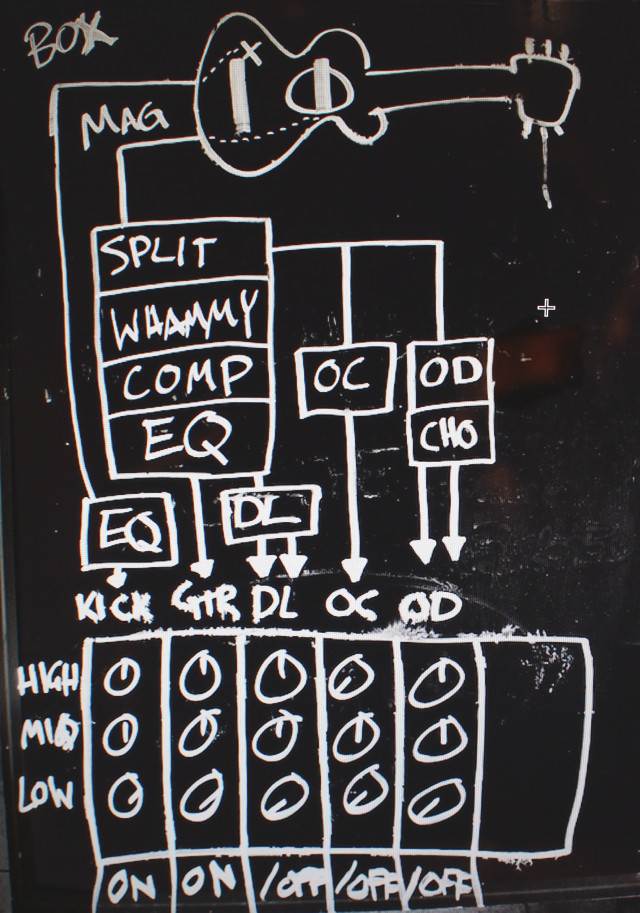 BOX
MAG
SPLIT
WHAMMY
COMP
EQ
OC
OD
CHO
EQ
DL
KICK GTR DL OC OD
HIGH
MID
LOW
ON ON /OFF /OFF /OFF